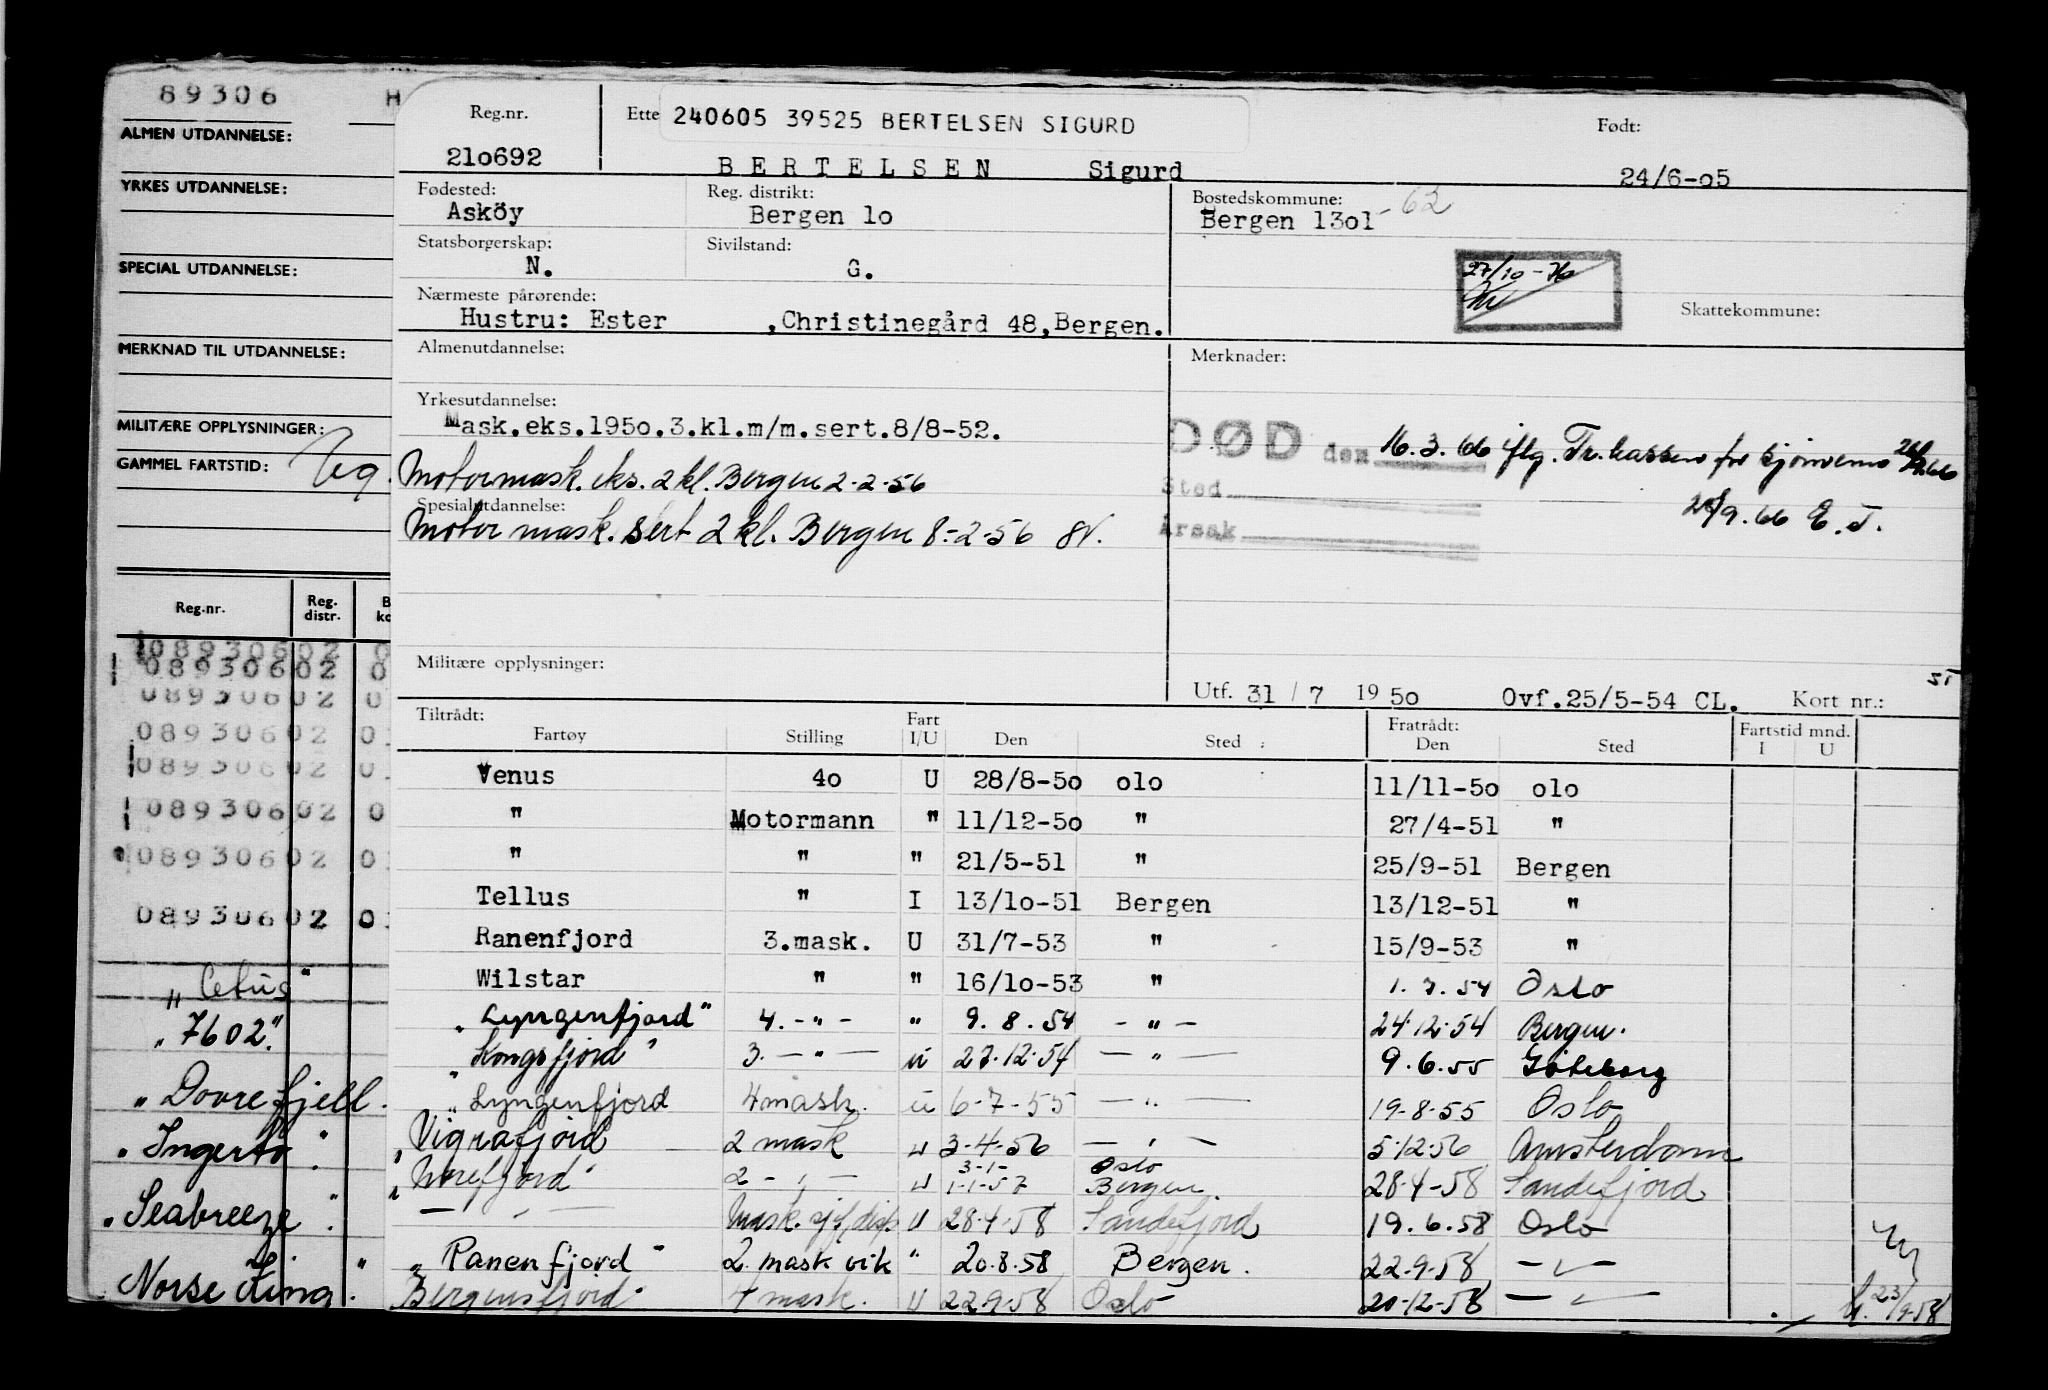 89306 H
ALMEN UTDANNELSE:
YRKES UTDANNELSE:
SPECIAL UTDANNELSE:
MERKNAD TIL UTDANNELSE:
MILITÆRE OPPLYSNINGER:
GAMMEL FARTSTID:
Reg.nr. Reg. distr. B ko
089306 02 0
089306 02 0
089306 02 0
089306 02 0
089306 02 0
089306 02 0
089306 02 0
089306 02 0
"Cetus"
"7602"
"Dovrefjell.
"Ingerto"
"Seabreeze"
Norse King"
Reg.nr. Ette 240605 39525 BERTELSEN SIGURD Født:
21o692 BERTELSEN Sigurd 24/6-o5
Fødested: Reg. distrikt: Bostedskommune:
Asköy Bergen 1o Bergen 13o1 -62
Statsborgerskap: Sivilstand:
N. G. 27/10-
Nærmeste pårørende: Skattekommune:
Hustru: Ester ,Christinegård 48,Bergen.
Almenutdannelse: Merknader:
Yrkesutdannelse:
Mask.eks.195o.3.kl.m/m.sert.8/8-52.
DØD den 16.3.66 iflg. Tr.kassen for sjömenn
Motormask. eks. 2 kl. Bergen 2-2-56
Sted
Spesialutdannelse: 9.66 E.J.
Motor mask. sert 2 kl. Bergen 8-2-56
Årsak
Militære opplysninger:
Utf. 31 / 7 19 5o Ovf.25/5-54 CL. Kort nr.:
Tiltrådt: Fart Fratrådt: Fartstid mnd.
Fartøy Stilling I/U Den Sted Den Sted I U
Venus 4o U 28/8-5o o1o 11/11-5o o1o
" Motormann " 11/12-5o " 27/4-51 "
" " " 21/5-51 " 25/9-51 Bergen
Tellus " I 13/1o-51 Bergen 13/12-51 "
Ranenfjord 3.mask. U 31/7-53 " 15/9-53 "
Wilstar " " 16/1o-53 " 1.7.54 Oslo
"Lyngenfjord" 4.-"- " 9.8.54 -"- 24.12.54 Bergen.
"Kongsfjord" 3.-"- u 27.12.54 -"- 9.6.55 Göteborg
"Lyngenfjord 4 mask. u 6-7-55 -"- 19-8-55 Oslo
"Vigrafjord 2 mask u 3-4-56 -"- 5-12-56 Amsterdam
3-1- Oslo
"Norefjord" 2-"- u 1-1-57 Bergen. 28-4-58 Sandefjord
-"- Mask. u 28-4-58 Sandefjord 19.6.58 Oslo
"Ranenfjord" 2. mask vik " 20.8.58 Bergen. 22-9-58 -"-
Bergensfjord" 4 mask. U 22-9-58 Oslo 20-12-58 -"- 23/9-58